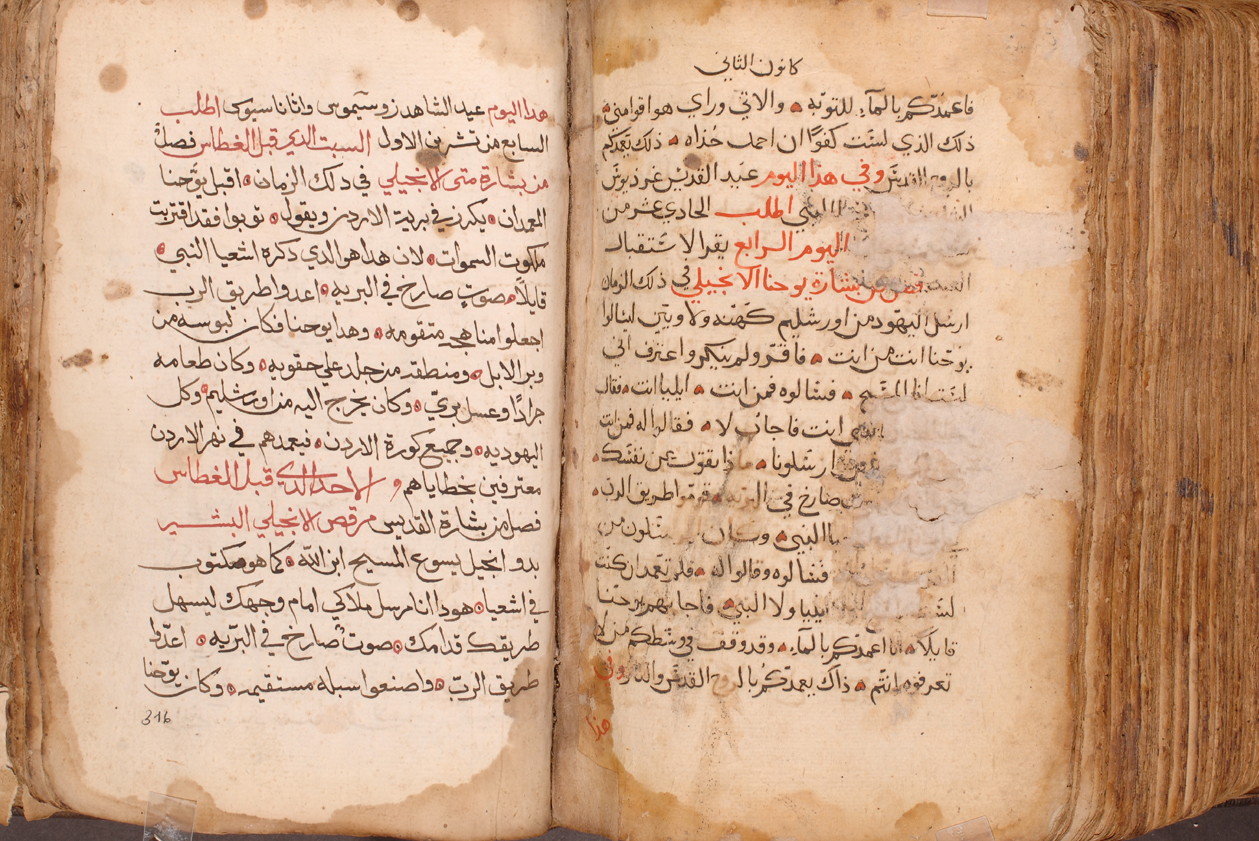 كانون الثاني
فاعمدكم بالمآء للتوبه والاتي وراي هو اقوا مني
ذلك الذي لست كفوًا ان احمل حُذاه ذلك يعمدكم
بالروح القدس وفي هذا اليوم عيد القديس غرذيوس
النبي اطلب الحادي عشر من
اليوم الرابع يقرا لاستقبال
فصل من بشارة يوحنا الانجيلي في ذلك الزمان
ارسل اليهود من اورشليم كهنه ولاويين ليسالوا
يوحنا انت من انت فاقر ولم ينكر واعترف اني
لست انا المسيح فسالوه فمن انت ايليا انت فقال
انت فاجاب لا فقالوا له فمن انت
ارسلونا ماذا تقول عن نفسك
صارخ في البريه قوموا طريق الرب
النبي
فسالوه وقالوا له فلم تعمد ان كنت
لست ايليا ولا النبي فاجابهم يوحنا
قايلًا انا اعمدكم بالمآء وقد وقف في وسطكم من لا
تعرفوه انتم ذاك يعمدكم بالروح القدس والنار وفي
هذا
هذا اليوم عيد الشاهد زوسيموس واثاناسيوس اطلب
السابع من تشرين الاول السبت الذي قبل الغطاس فصلٌ
من بشارة متى الانجيلي في ذلك الزمان اقبل يوحنا
المعمدان يكرز في برية الاردن ويقول توبوا فقد اقتربت
ملكوت السموات لان هذا هو الذي ذكره اشعيا النبي
قايلًا صوتٍ صارخ في البريه اعدوا طريق الرب
اجعلوا مناهجه متقومه وهذا يوحنا فكان لبوسه من
وبر الابل ومنطقه من جلد علي حقويه وكان طعامه
جرادًا وعسل بريّ وكان يخرج اليه من اورشليم وكل
اليهوديه وجميع كورة الاردن فيعمدهم في نهر الاردن
معترفين بخطاياهم الاحد الذي قبل الغطاس
فصل من بشارة القديس مرقص الانجيلي البشير
بدو انجيل يسوع المسيح ابن الله كما هو مكتوب
في اشعيا هوذا انا مرسل ملاكي امام وجهك ليسهل
طريقك قدامك صوت صارخ في البريه اعدوا
طريق الربّ واصنعوا سبله مستقيمه وكان يوحنا
316